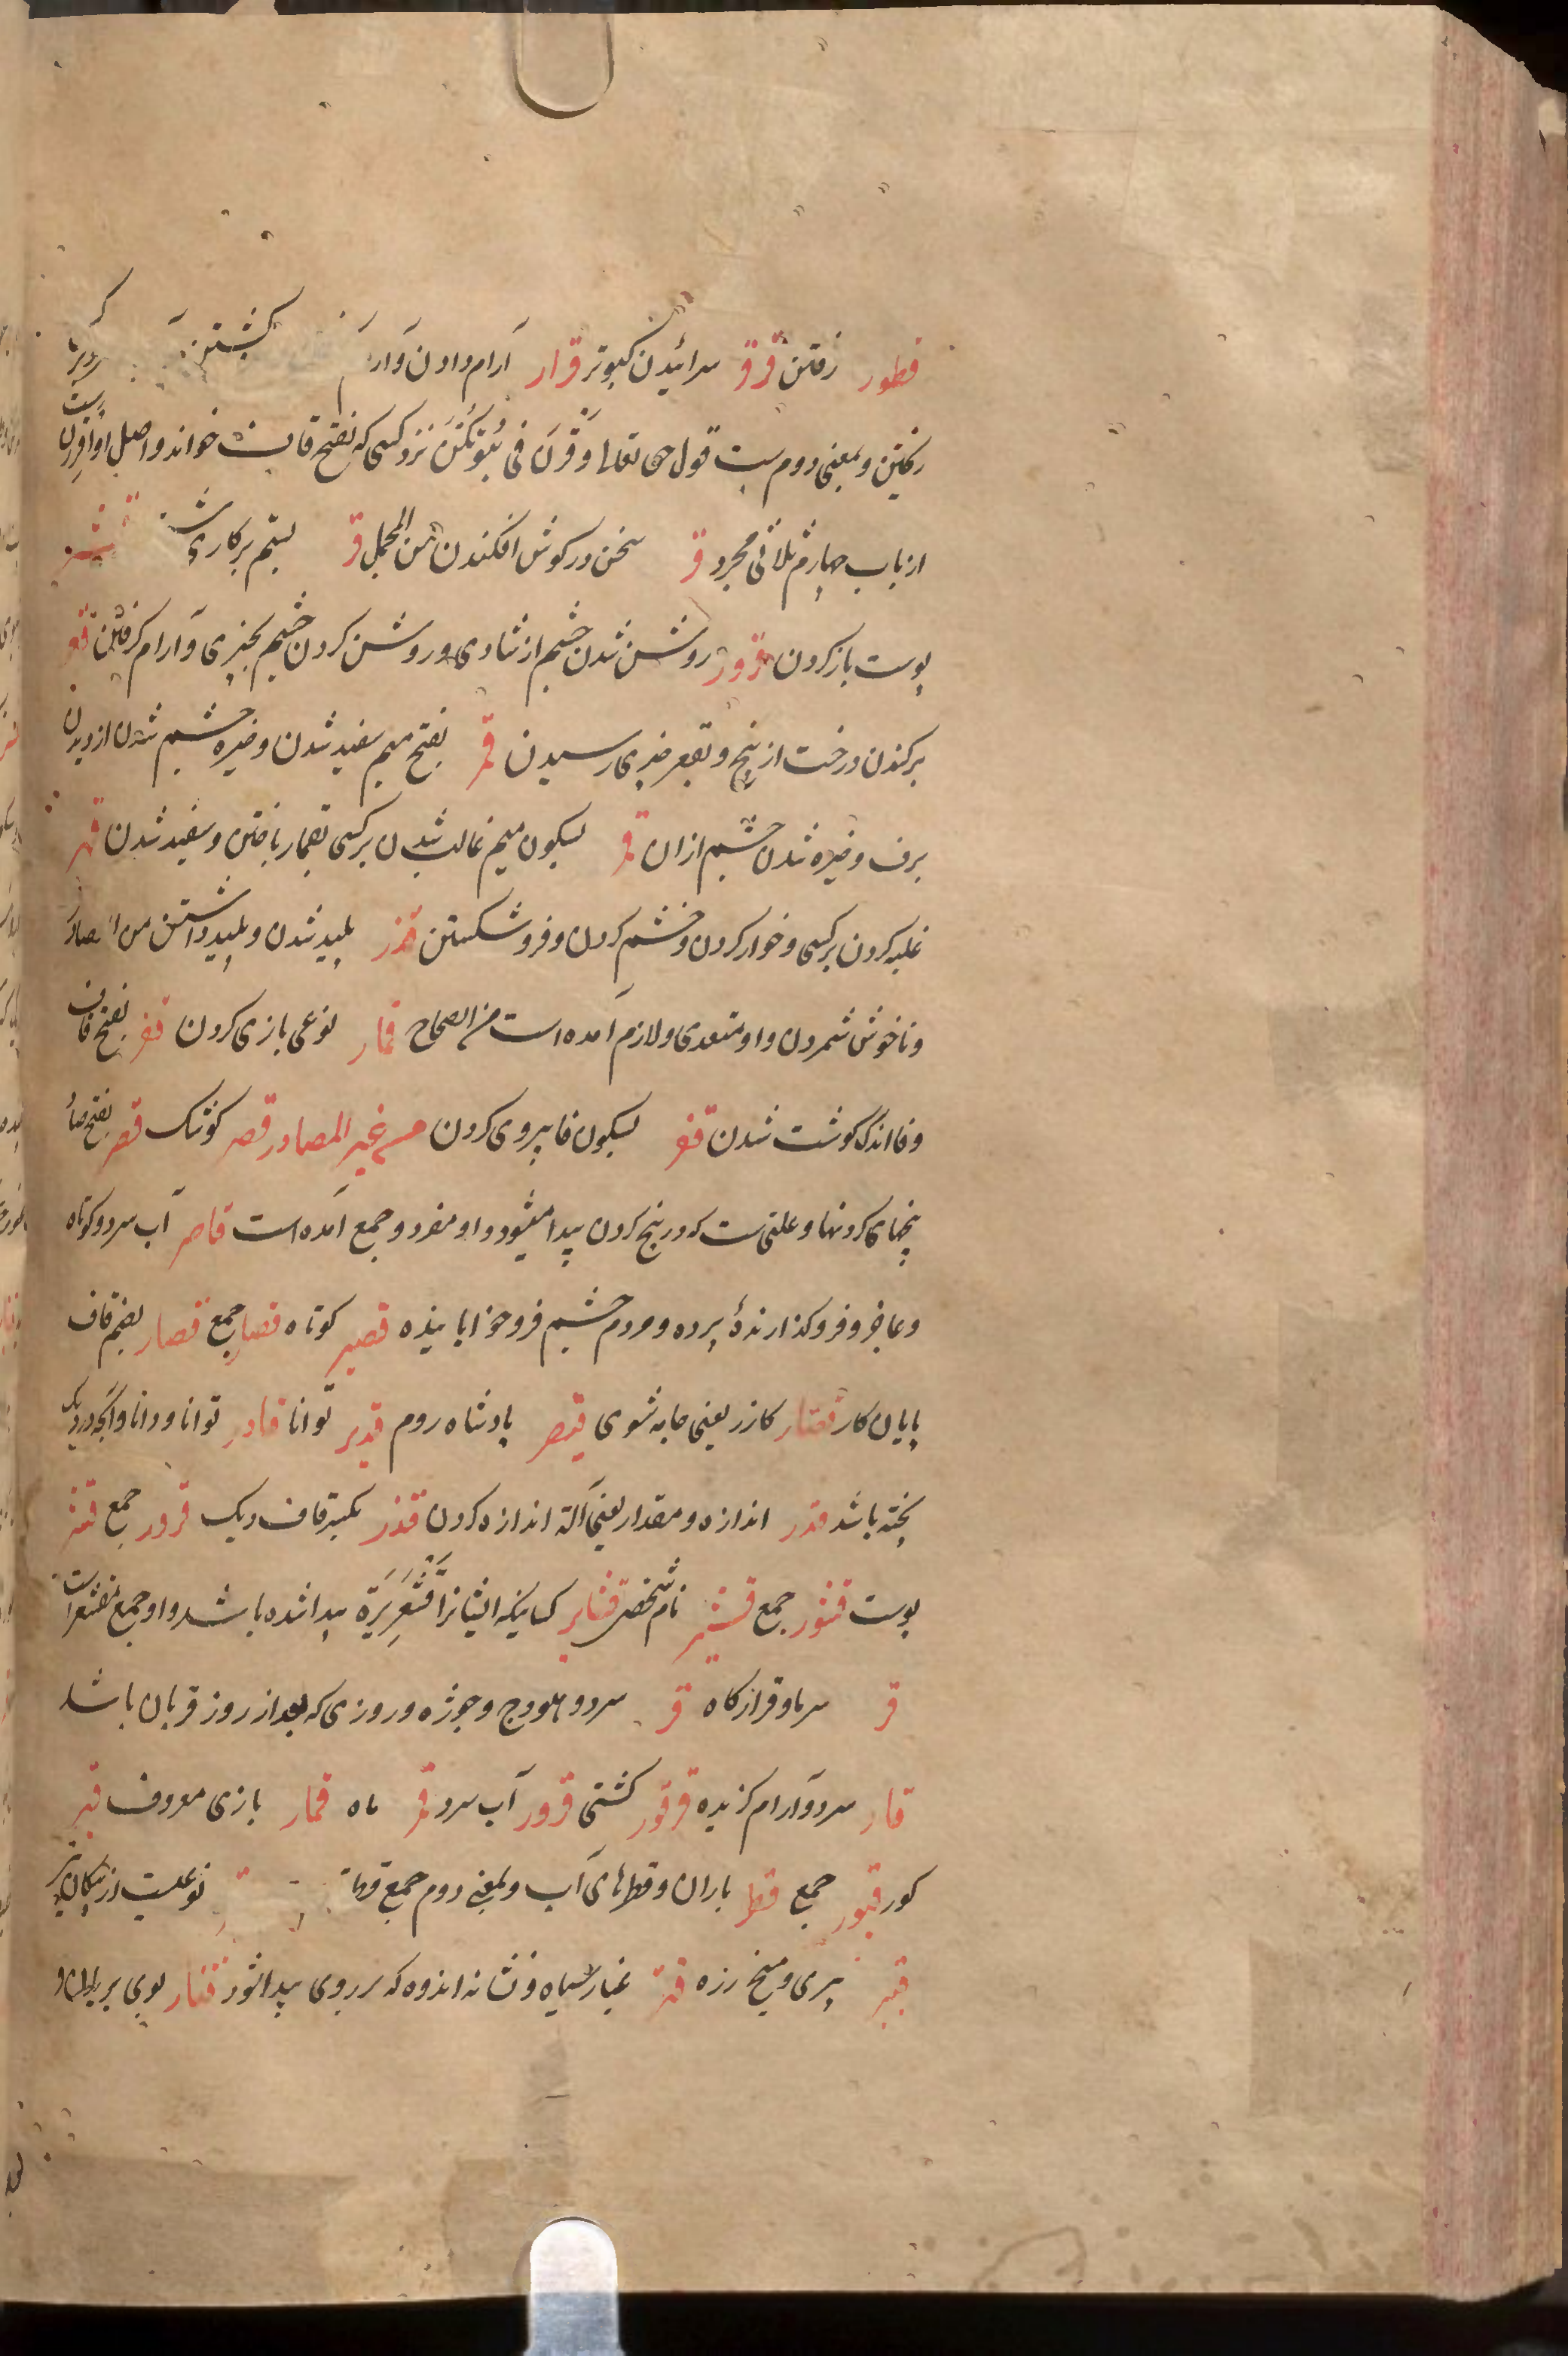 قطور رفتن قرقر سرائیدن کبوتر قرار آرام دادن و آرام کشتن
ریختن و بمعنی دوم ست قول حق تعالی وَقَرْنَ فی بُیُوتِکُنَّ نزد کسی که بفتح قاف خواند و اصل او اقررن ست
از باب چهارم ثلاثی مجرد قر سخن در کوش افکندن من المجمل قر بستم بر کاری قشر
پوست باز کردن قرور روشن شدن چشم از شادی و روشن کردن چشم بچیزی و آرام کرفتن قعر
برکندن درخت از بیخ و بقعر چیزی رسیدن قمر بفتح میم سفید شدن و خیره چشم شدن از دیدن
برف و خیره شدن چشم از ان قمر بسکون میم غالب شدن بر کسی بقمار باختن و سفید شدن قهر
غلبه کردن بر کسی و خوار کردن و خشم کردن و فرو شکستن قذر پلید شدن و پلید داشتن من المصادر
و ناخوش شمردن و او متعدی و لازم آمده است من الصحاح قمار نوعی بازی کردن قفر بفتح قاف
و فا اندک کوشت شدن قفر بسکون فا پیروی کردن من غیر المصادر قصر کوشک قصر بفتح صاد
پنهای کردنها و علتی ست که در بیخ کردن پیدا میشود و او مفرد و جمع آمده است قاصر آب سرد و کوتاه
و عاجز و فرو کذارندهٔ پرده و مردم چشم فرو خوابانیده قصیر کوتاه قصار جمع قصار بضم قاف
پایان کار قصار کازر یعنی جامه شوی قیصر پادشاه روم قدیر توانا قادر توانا و دانا و آنچه در دیک
پخته باشد قدر اندازه و مقدار یعنی آلة اندازه کردن قدر بکسر قاف دیک قدور جمع قشر
پوست قشور جمع قشیر نام شخصی قشایر کسانیکه ایشانرا قُشَعْرِیرَة پیدا شده باشد و او جمع مقشعر است
قر سرما و قرارکاه قر سرد و هودج و جوژه و روزی که بعد از روز قربان باشد
قار سرد و آرام کزیده قرقور کشتی قرور آب سرد قمر ماه قمار بازی معروف قبر
کور قبور جمع قطر باران و قطرهای آب و بمعنی دوم جمع قطرة نوعیست از پیکان تیر
قتیر پیری و میخ زره قتر غبار سیاه و نشانه اندوه که بر روی پیدا شود قتار بوی بریان و